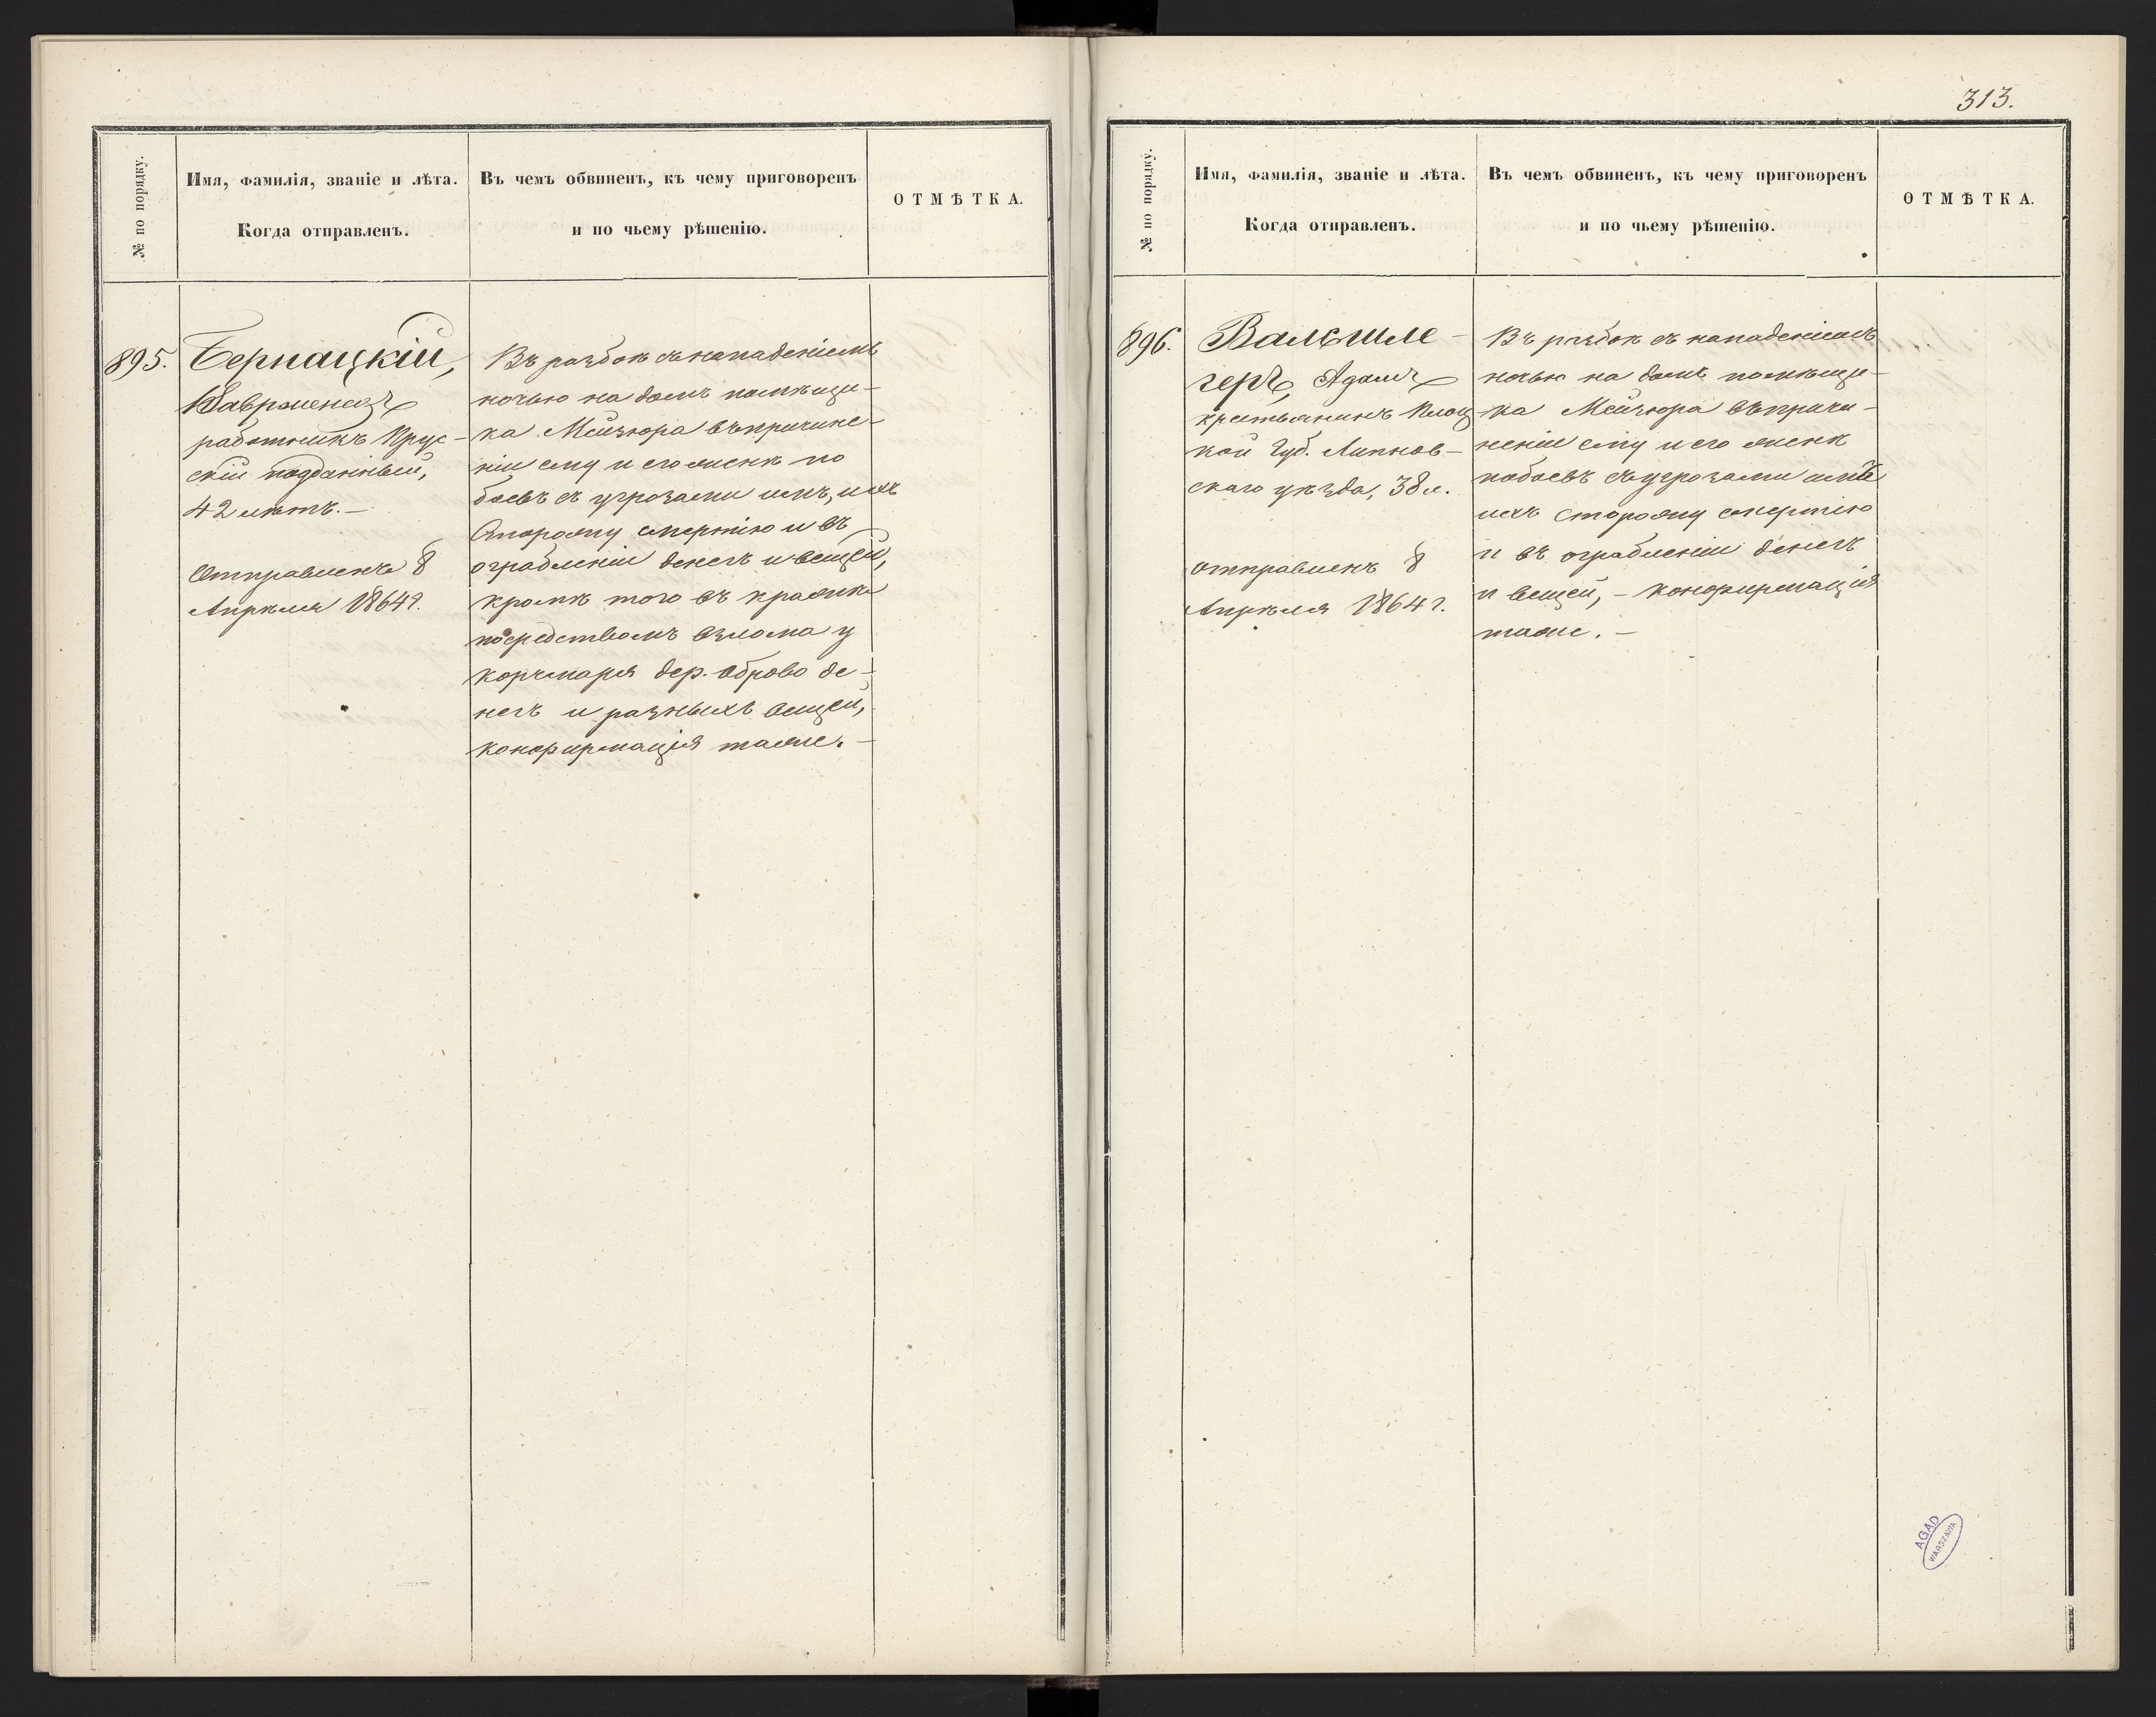 № по порядку.
Имя, фамилія, званіе и лѣта.
Когда отправленъ.
Въ чемъ обвиненъ, къ чему приговоренъ
и по чьему рѣшенію.
ОТМѢТКА.
895.
Бернацкій,
Лавренецъ
работникъ Прус-
скій подданный,
42 лѣтъ.—
Отправленъ 8
Апрѣля 1864 г.
Въ разбоѣ съ нападеніемъ
ночью на домъ помѣщи-
ка Мейзюра въ причине-
ніи ему и его женѣ по
боевъ съ угрозами имъ, и ихъ
Сторожу смертію и въ
ограбленіи денегъ и вещей,
кромѣ того въ кражѣ
посредствомъ взлома у
корчмаря дер. Оброво де-
негъ и разныхъ вещей,
конфирмація таже.—
313.
№ по порядку.
Имя, фамилія, званіе и лѣта.
Когда отправленъ.
Въ чемъ обвиненъ, къ чему приговоренъ
и по чьему рѣшенію.
ОТМѢТКА.
896.
Валешле-
геръ, Адамъ
крестьянинъ Плоц
кой Губ. Липнов-
скаго уѣзда, 38 л.
отправленъ 8
Апрѣля 1864 г.
Въ разбоѣ съ нападеніемъ
ночью на домъ помѣщи-
ка Мейзюра въ причи-
неніи ему и его женѣ
побоевъ съ угрозами имъ и
ихъ сторожу смертію
и въ ограбленіи денегъ
и вещей, — конфирмація
таже.—
AGAD
WARSZAWA